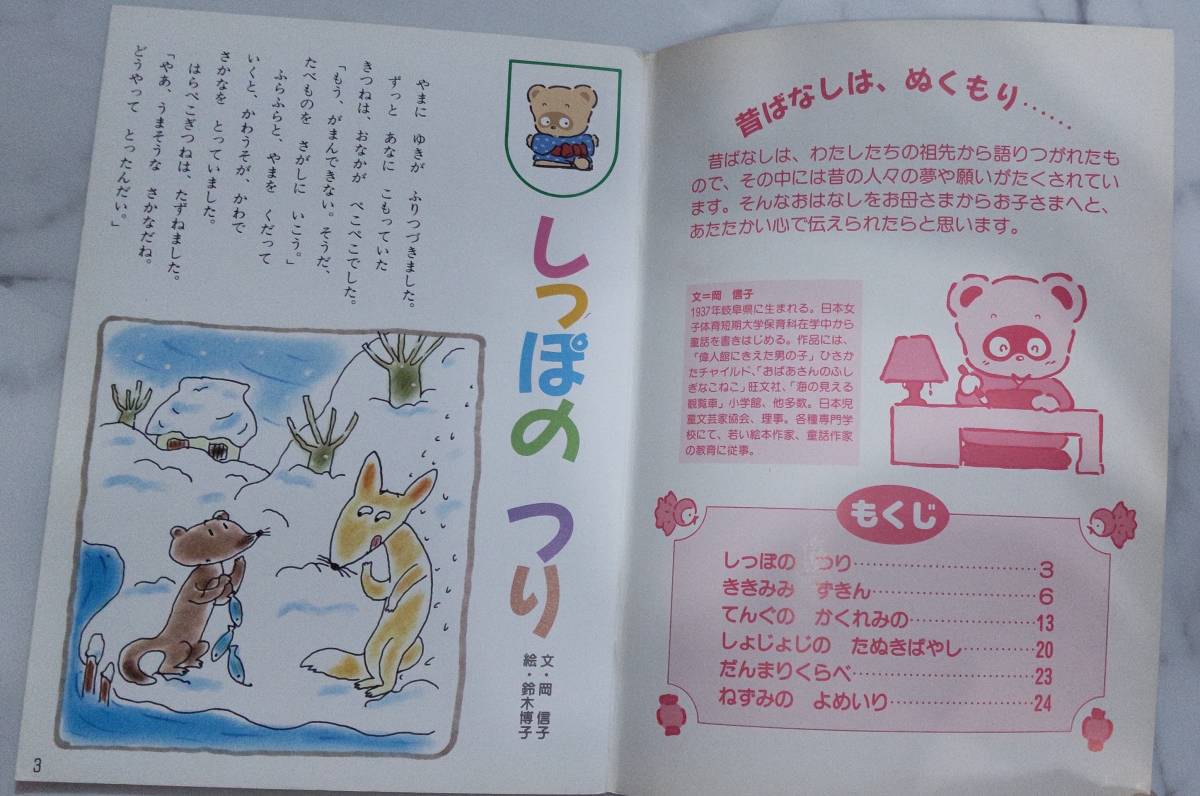 昔ばなしは、ぬくもり……
昔ばなしは、わたしたちの祖先から語りつがれたも
ので、その中には昔の人々の夢や願いがたくされてい
ます。そんなおはなしをお母さまからお子さまへと、
あたたかい心で伝えられたらと思います。
文=岡 信子
1937年岐阜県に生まれる。日本女
子体育短期大学保育科在学中から
童話を書きはじめる。作品には、
「偉人館にきえた男の子」ひさか
たチャイルド、「おばあさんのふし
ぎなこねこ」旺文社、「海の見える
観覧車」小学館、他多数。日本児
童文芸家協会、理事。各種専門学
校にて、若い絵本作家、童話作家
の教育に従事。
もくじ
しっぽの つり……………………3
ききみみ ずきん…………………6
てんぐの かくれみの……………13
しょじょじの たぬきばやし………20
だんまりくらべ……………………23
ねずみの よめいり………………24
しっぽの つり
文・岡 信子
絵・鈴木博子
やまに ゆきが ふりつづきました。
ずっと あなに こもっていた
きつねは、おなかが ぺこぺこでした。
「もう、がまんできない。そうだ、
たべものを さがしに いこう。」
ふらふらと、やまを くだって
いくと、かわうそが、かわで
さかなを とっていました。
はらぺこぎつねは、たずねました。
「やあ、うまそうな さかなだね。
どうやって とったんだい。」
3